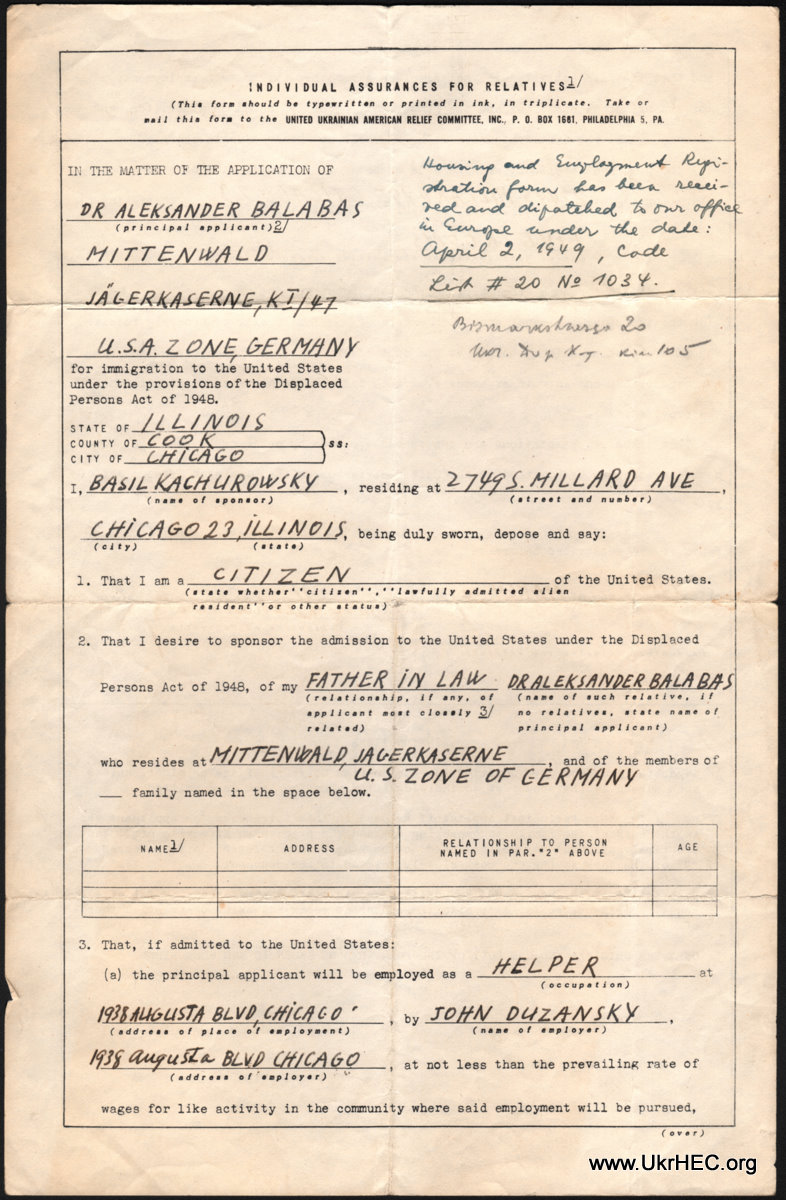 INDIVIDUAL ASSURANCES FOR RELATIVES 1/
(This form should be typewritten or printed in ink, in triplicate. Take or
mail this form to the UNITED UKRAINIAN AMERICAN RELIEF COMMITTEE, INC., P. O. BOX 1661, PHILADELPHIA 5, PA.
IN THE MATTER OF THE APPLICATION OF
DR ALEKSANDER BALABAS
(principal applicant) 2/
MITTENWALD
JÄGERKASERNE, K I/47
U.S.A. ZONE, GERMANY
for immigration to the United States
under the provisions of the Displaced
Persons Act of 1948.
Housing and Employment Regi-
stration form has been recei-
ved and dipatched to our office
in Europe under the date:
April 2, 1949, Code
List # 20 No 1034.
20
105
STATE OF ILLINOIS
COUNTY OF COOK ss:
CITY OF CHICAGO
I, BASIL KACHUROWSKY, residing at 2749 S. MILLARD AVE,
(name of sponsor) (street and number)
CHICAGO 23, ILLINOIS, being duly sworn, depose and say:
(city) (state)
1. That I am a CITIZEN of the United States.
(state whether "citizen", "lawfully admitted alien
resident" or other status)
2. That I desire to sponsor the admission to the United States under the Displaced
Persons Act of 1948, of my FATHER IN LAW DR ALEKSANDER BALABAS
(relationship, if any, of (name of such relative, if
applicant most closely 3/ no relatives, state name of
related) principal applicant)
who resides at MITTENWALD, JAGERKASERNE, and of the members of
U.S. ZONE OF GERMANY
family named in the space below.
NAME 1/ ADDRESS RELATIONSHIP TO PERSON NAMED IN PAR. "2" ABOVE AGE
3. That, if admitted to the United States:
(a) the principal applicant will be employed as a HELPER at
(occupation)
1938 AUGUSTA BLVD, CHICAGO, by JOHN DUZANSKY,
(address of place of employment) (name of employer)
1938 Augusta BLVD CHICAGO, at not less than the prevailing rate of
(address of employer)
wages for like activity in the community where said employment will be pursued,
(over)
www.UkrHEC.org